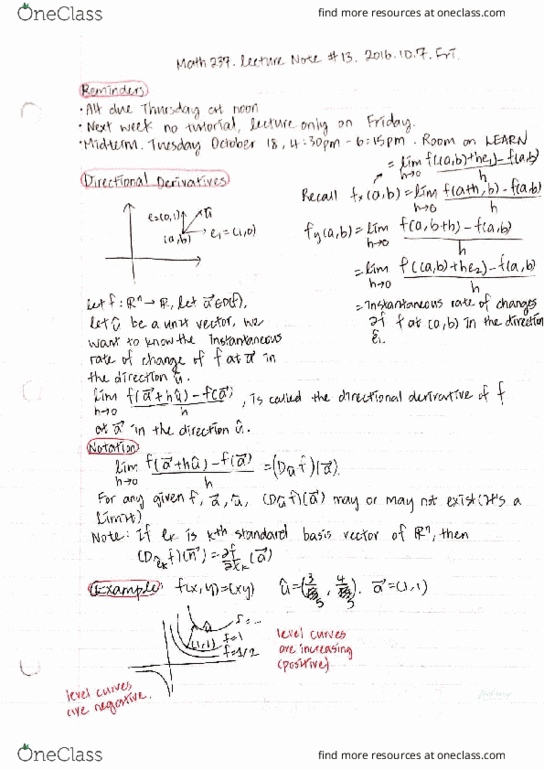 OneClass
find more resources at oneclass.com
Math 237. Lecture Note #13. 2016.10.7. Fri.
Reminders
· A4 due Thursday at noon
· Next week no tutorial, lecture only on Friday.
· Midterm. Tuesday October 18, 4:30pm - 6:15pm. Room on LEARN
Directional Derivatives
= lim h→0 f((a,b)+he₁) - f(a,b) / h
Recall fx(a,b) = lim h→0 f(a+h,b) - f(a,b) / h
fy(a,b) = lim h→0 f(a,b+h) - f(a,b) / h
= lim h→0 f((a,b)+he₂) - f(a,b) / h
= instantaneous rate of changes
of f at (a,b) in the direction
e₂(0,1) û
(a,b) e₁=(1,0)
Let f: ℝⁿ→ℝ, let a⃗∈D(f),
let û be a unit vector, we
want to know the instantaneous
rate of change of f at a⃗ in
the direction û.
lim h→0 f(a⃗+hû) - f(a⃗) / h, is called the directional derivative of f
at a⃗ in the direction û.
Notation
lim h→0 f(a⃗+hû) - f(a⃗) / h = (Dûf)(a⃗)
For any given f, a⃗, û, (Dûf)(a⃗) may or may not exist (It's a
limit)
Note: if eₖ is kth standard basis vector of ℝⁿ, then
(Dₑₖf)(a⃗) = ∂f/∂xₖ (a⃗)
Example: f(x,y)=(xy) û=(3/5, 4/5). a⃗=(1,1)
f=...
(1,1) f=1
f=1/2
level curves
are increasing
(positive)
level curves
are negative.
OneClass
find more resources at oneclass.com